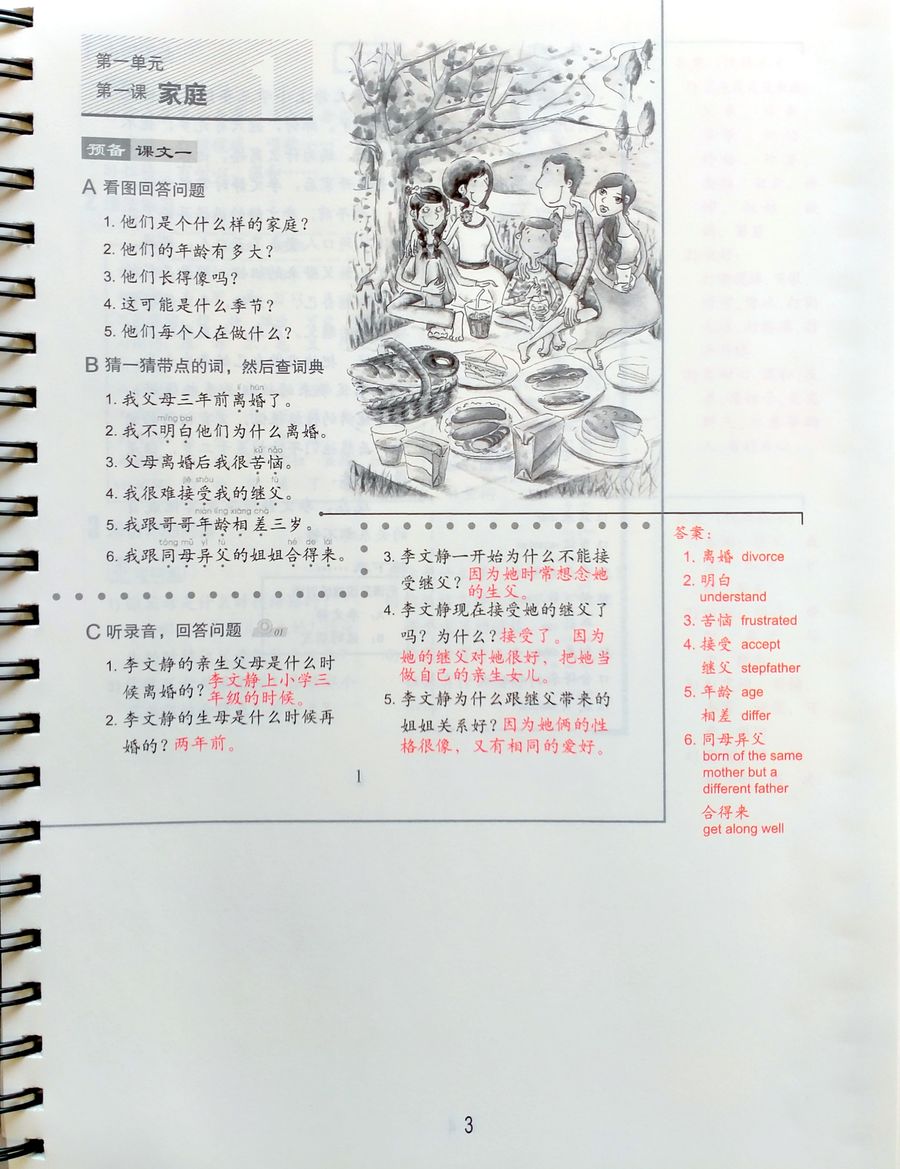 第一单元
第一课 家庭
1
预备 课文一
A 看图回答问题
1. 他们是个什么样的家庭？
2. 他们的年龄有多大？
3. 他们长得像吗？
4. 这可能是什么季节？
5. 他们每个人在做什么？
B 猜一猜带点的词，然后查词典
lí hūn
1. 我父母三年前离婚了。
míng bai
2. 我不明白他们为什么离婚。
kǔ nǎo
3. 父母离婚后我很苦恼。
jiē shòu jì fù
4. 我很难接受我的继父。
nián líng xiāng chà
5. 我跟哥哥年龄相差三岁。
tóng mǔ yì fù hé de lái
6. 我跟同母异父的姐姐合得来。
C 听录音，回答问题 01
1. 李文静的亲生父母是什么时
候离婚的？李文静上小学三
年级的时候。
2. 李文静的生母是什么时候再
婚的？两年前。
3. 李文静一开始为什么不能接
受继父？因为她时常想念她
的生父。
4. 李文静现在接受她的继父了
吗？为什么？接受了。因为
她的继父对她很好，把她当
做自己的亲生女儿。
5. 李文静为什么跟继父带来的
姐姐关系好？因为她俩的性
格很像，又有相同的爱好。
1
答案：
1. 离婚 divorce
2. 明白
understand
3. 苦恼 frustrated
4. 接受 accept
继父 stepfather
5. 年龄 age
相差 differ
6. 同母异父
born of the same
mother but a
different father
合得来
get along well
3